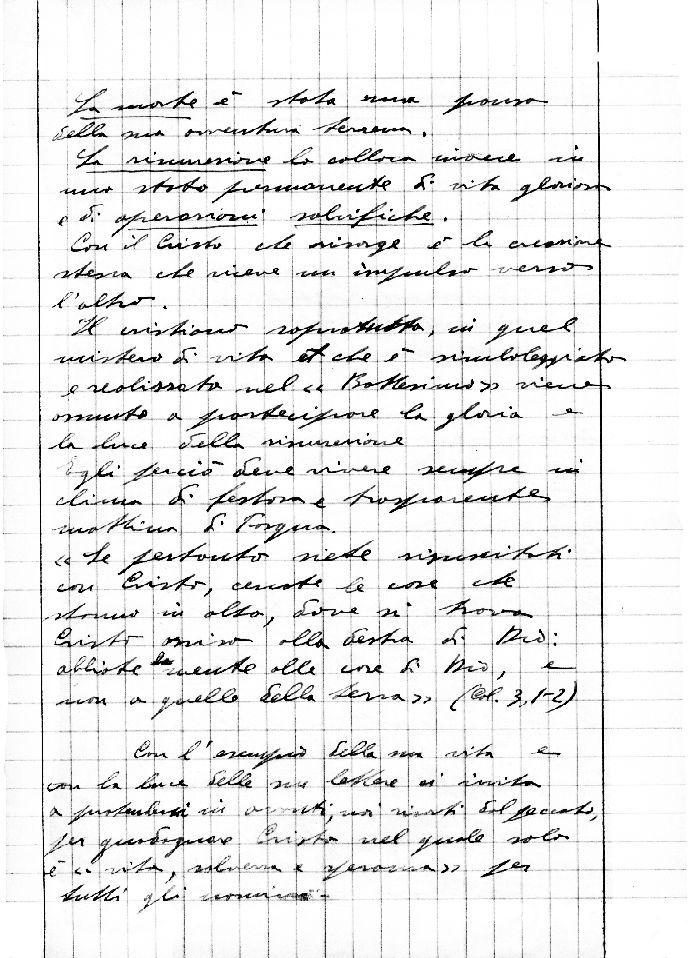 La morte è stata una pausa
della sua avventura terrena.
La risurrezione lo colloca invece in
uno stato permanente di vita gloriosa
e di operazioni salvifiche.
Con il Cristo che risorge è la creazione
stessa che riceve un impulso verso
l'alto.
Il cristiano soprattutto, in quel
mistero di vita che è simboleggiato
e realizzato nel « Battesimo » viene
assunto a partecipare la gloria e
la luce della risurrezione
Egli perciò deve vivere sempre in
clima di festosa e trasparente
mattina di Pasqua.
« Se pertanto siete risuscitati
con Cristo, cercate le cose che
stanno in alto, dove si trova
Cristo assiso alla destra di Dio:
abbiate la mente alle cose di Dio, e
non a quelle della terra » (Col. 3,1-2)
Con l'esempio della sua vita e
con la luce delle sue lettere ci invita
a protenderci in avanti, noi risorti dal peccato,
per guadagnare Cristo nel quale solo
è « vita, salvezza e speranza » per
tutti gli uomini